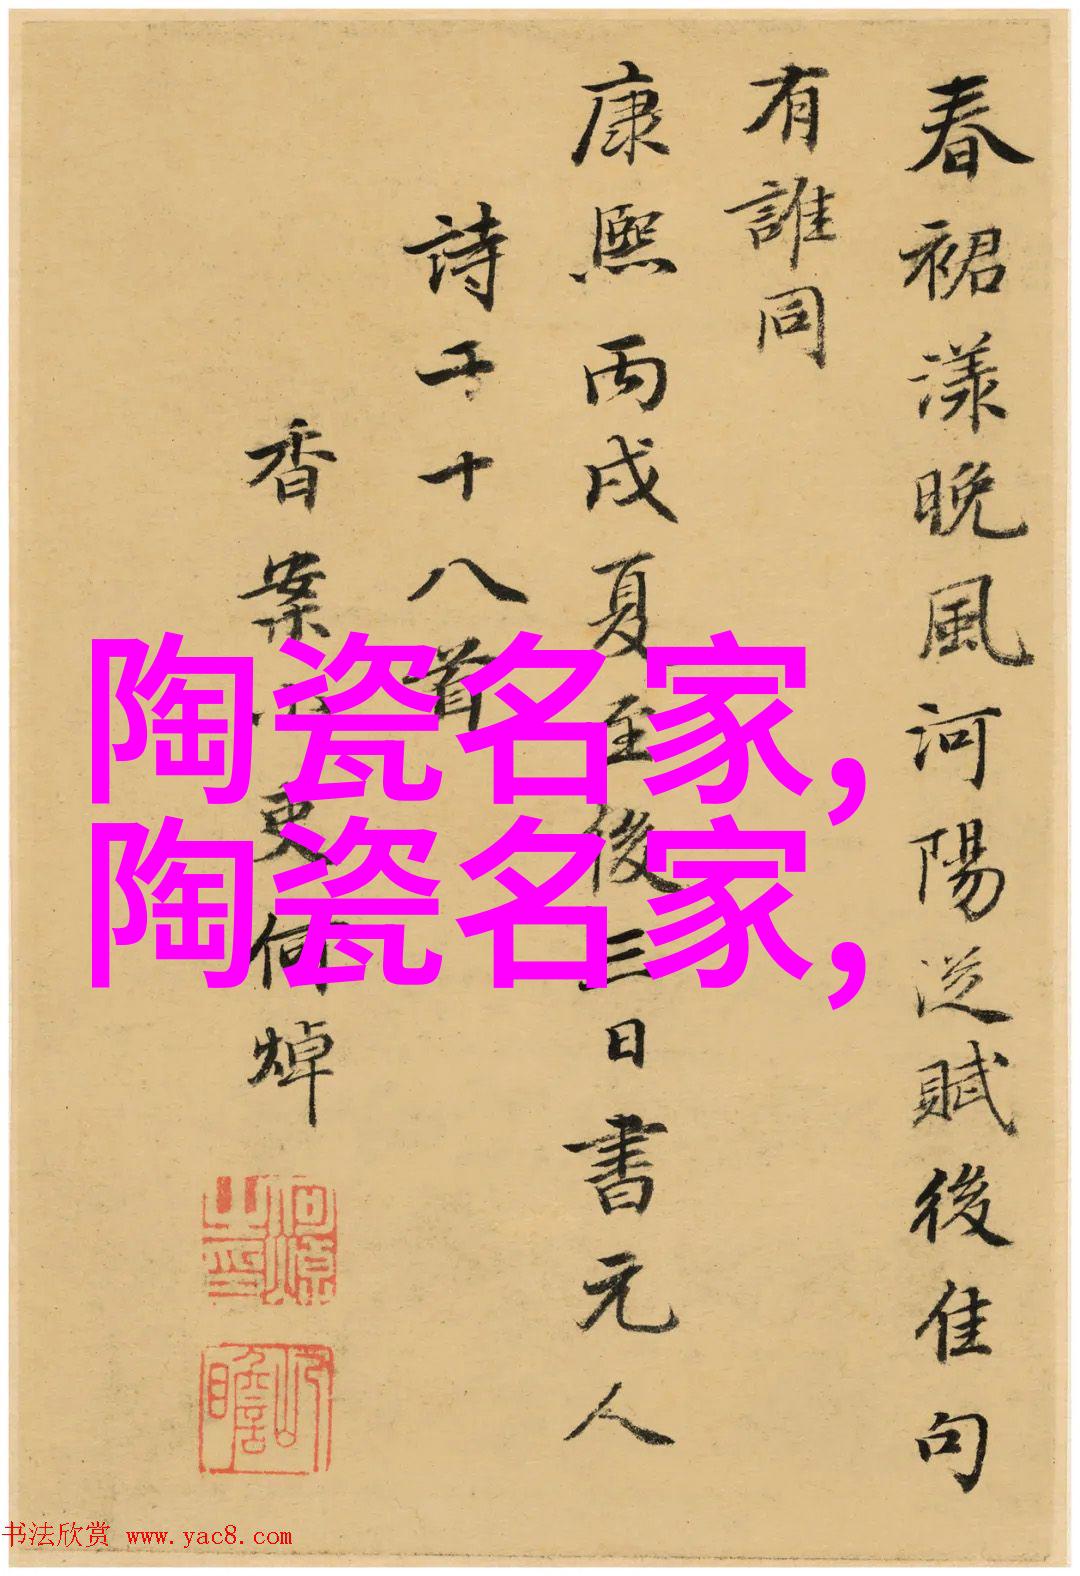 春裙漾晚風河陽從賦後佳句
有誰同
康熙丙戌夏至後三日書元人
詩于十八首
香案小吏何焯
何焯之印
屺瞻
陶瓷名家,
陶瓷名家,
书法欣赏 www.yac8.com